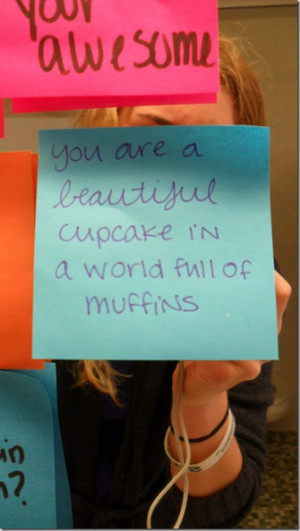 your
awesome
you are a
beautiful
cupcake in
a world full of
muffins
in
?